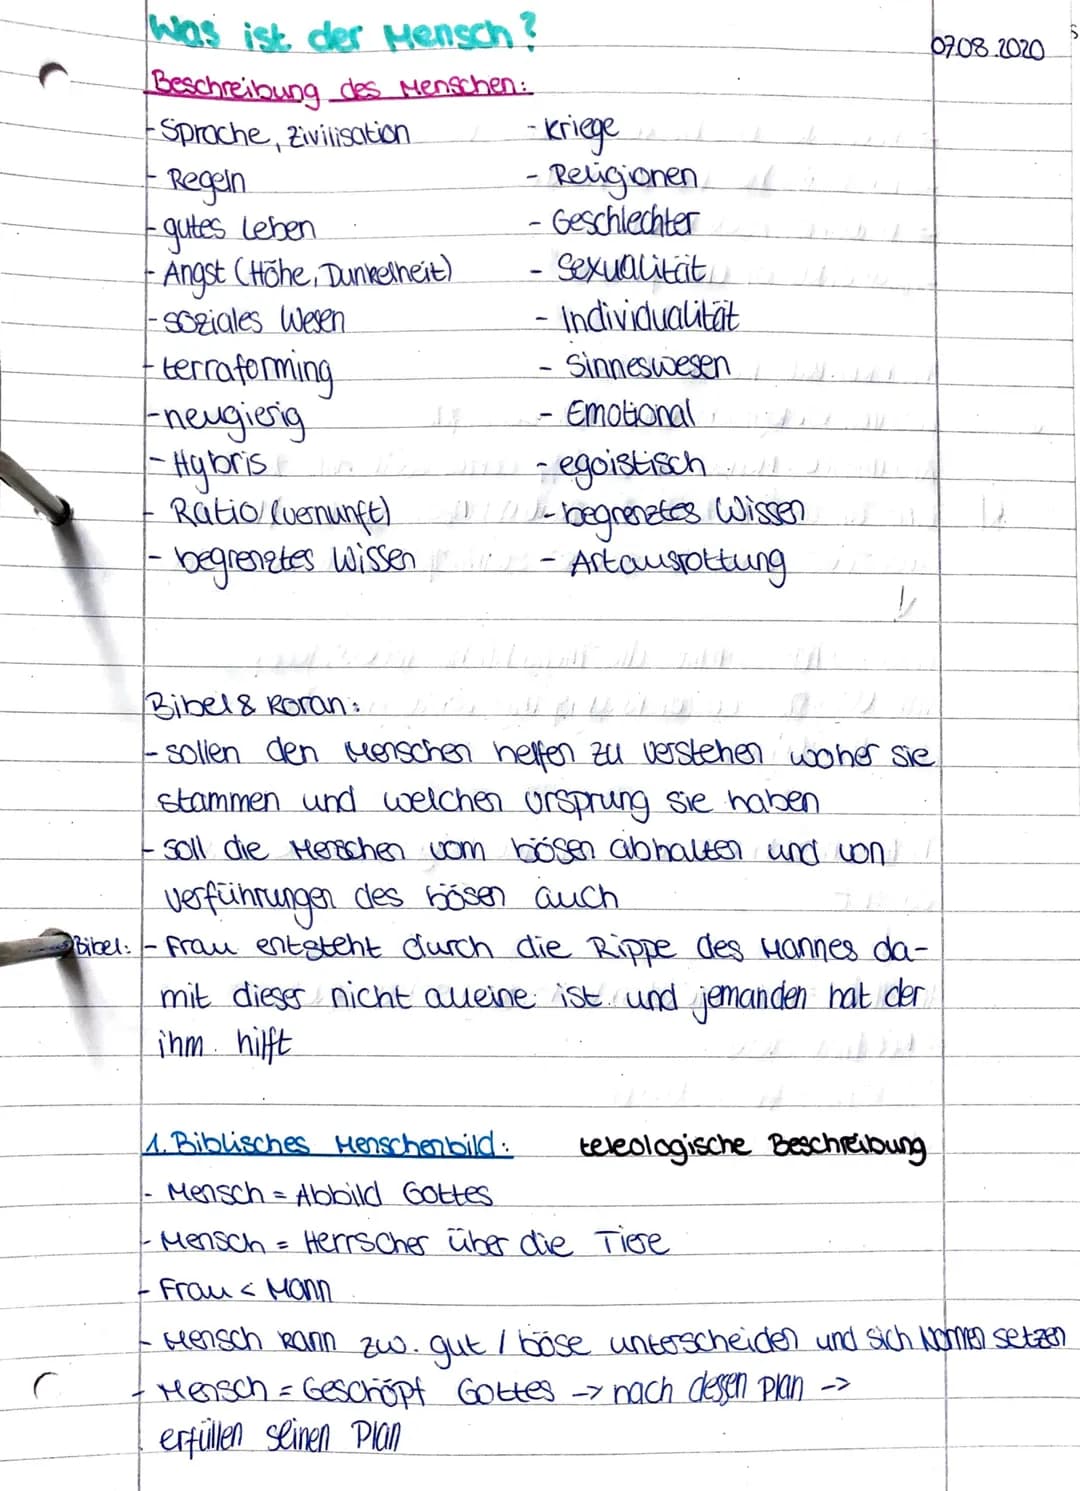 Was ist der Mensch?
07.08.2020
Beschreibung des Menschen:
- Sprache, Zivilisation
- Regeln
- gutes Leben
- Angst (Höhe, Dunkelheit)
- soziales Wesen
- terraforming
- neugierig
- Hybris
- Ratio/(Vernunft)
- begrenztes Wissen
- Kriege
- Religionen
- Geschlechter
- Sexualität
- Individualität
- Sinneswesen
- Emotional
- egoistisch
- begrenztes Wissen
- Artausrottung
Bibel & Koran:
- sollen den Menschen helfen zu verstehen woher sie
stammen und welchen Ursprung sie haben
- soll die Menschen vom bösen abhalten und von
verführungen des bösen auch
Bibel: - Frau entsteht durch die Rippe des Mannes da-
mit dieser nicht alleine ist und jemanden hat der
ihm hilft
1. Biblisches Menschenbild: teleologische Beschreibung
- Mensch = Abbild Gottes
- Mensch = Herrscher über die Tiere
- Frau < Mann
- Mensch kann zw. gut / böse unterscheiden und sich Normen setzen
- Mensch = Geschöpf Gottes -> nach dessen Plan ->
erfüllen seinen Plan